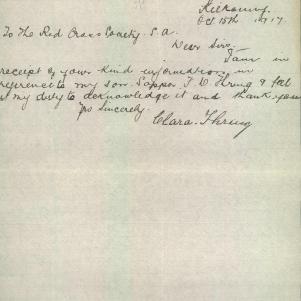 Kilkenny.
Oct 15th 1917.
To The Red Cross Society. S.A.
Dear Sirs.
I am in
receipt of your kind information in
reference to my son Sapper F. C. Thring & feel
it my duty to acknowledge it and thank you
Yrs Sincerely.
Clara. Thring